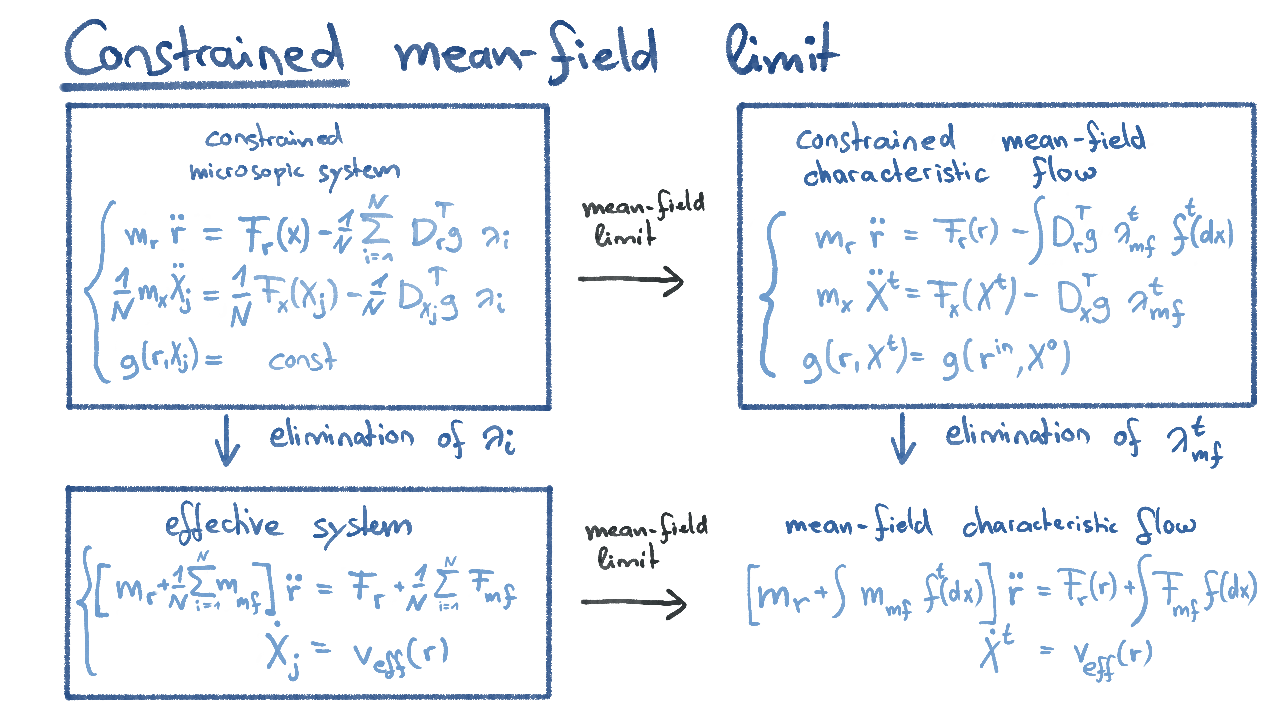 Constrained mean-field limit
constrained
microsopic system
m_r r̈ = F_r(x) - 1/N ∑_{i=1}^N D_r^T g λ_i
1/N m_x Ẍ_j = 1/N F_x(X_j) - 1/N D_{x_j}^T g λ_i
g(r, X_j) = const
mean-field
limit
constrained mean-field
characteristic flow
m_r r̈ = F_r(r) - ∫ D_r^T g λ_{mf}^t f^t(dx)
m_x Ẍ^t = F_x(X^t) - D_x^T g λ_{mf}^t
g(r, X^t) = g(r^{in}, X^0)
elimination of λ_i
elimination of λ_{mf}^t
effective system
[m_r + 1/N ∑_{i=1}^N m_{mf}] r̈ = F_r + 1/N ∑_{i=1}^N F_{mf}
Ẋ_j = v_{eff}(r)
mean-field
limit
mean-field characteristic flow
[m_r + ∫ m_{mf} f^t(dx)] r̈ = F_r(r) + ∫ F_{mf} f(dx)
Ẋ^t = v_{eff}(r)